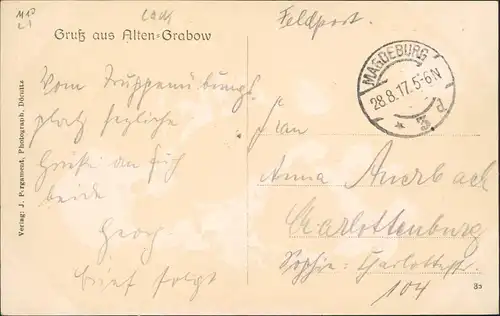 Feldpost.
Gruß aus Alten-Grabow
Vom Truppenübungs-
platz herzliche
Grüße an Euch
beide
Georg
Brief folgt
MAGDEBURG
28.8.17.5-6N
Frau
Anna Auerbach
Charlottenburg
Sophie-Charlottestr.
104
Verlag: J. Pergament, Photograph, Dörnitz